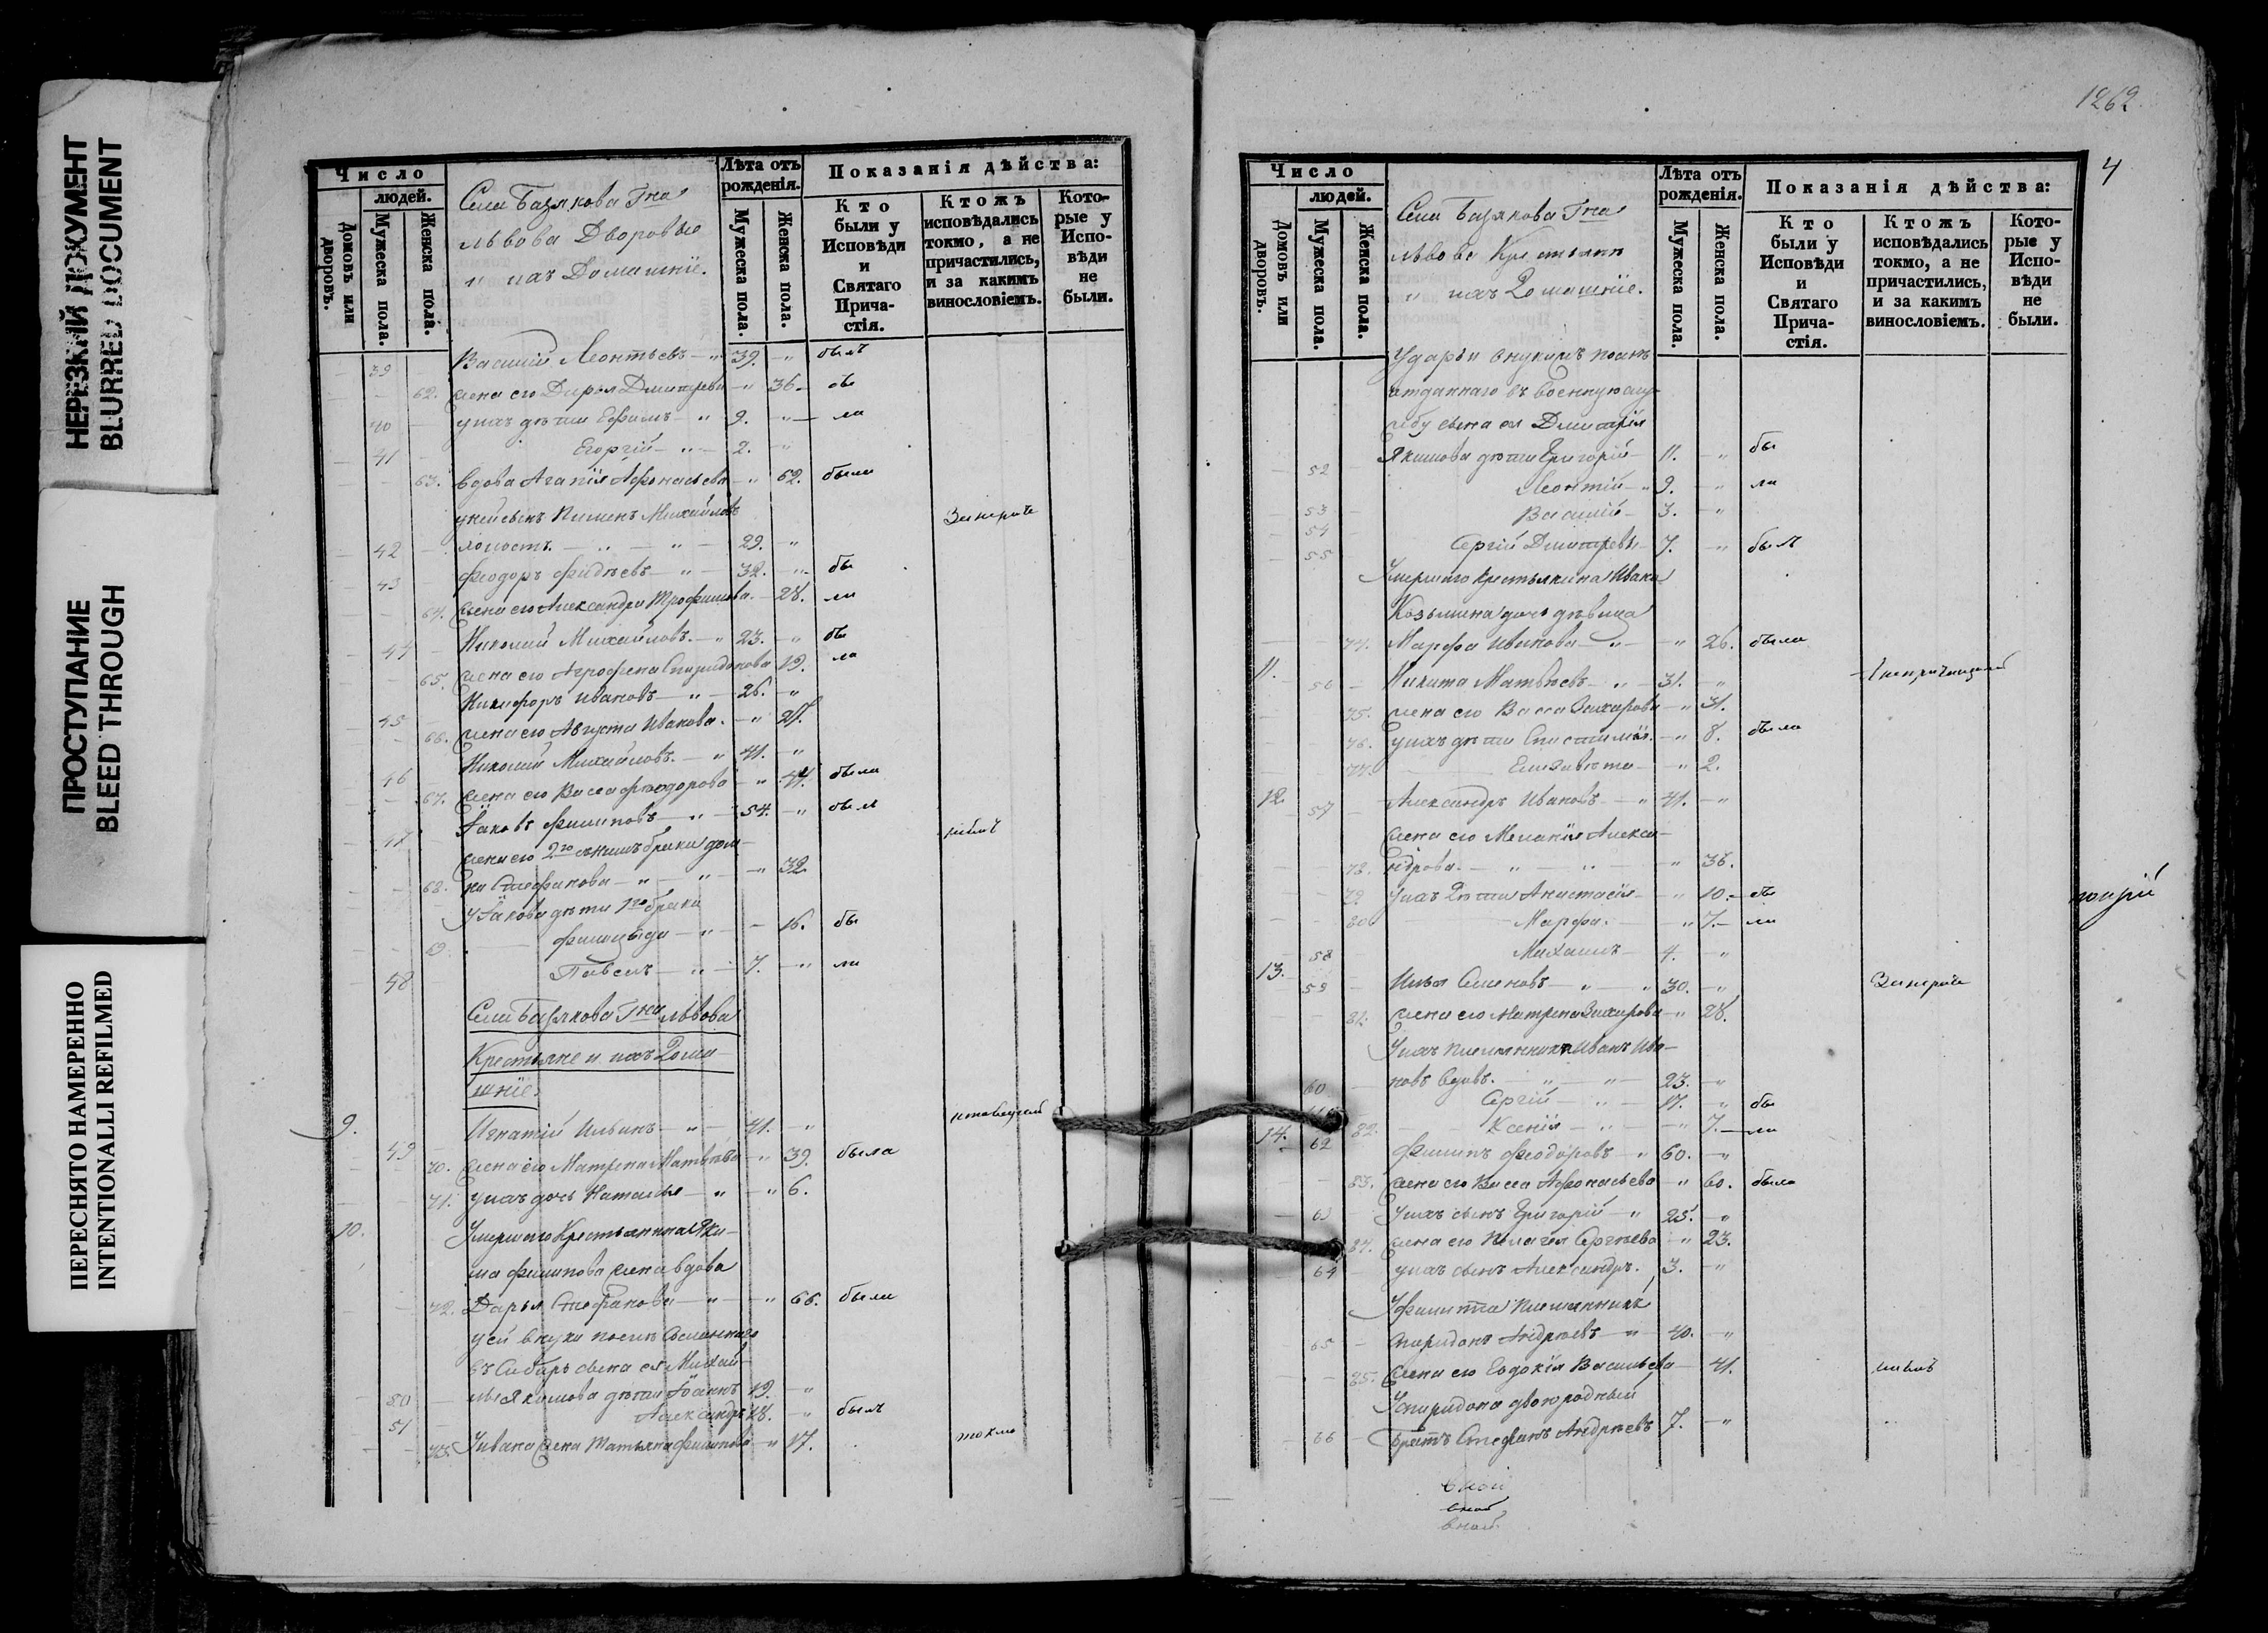 НЕРЕЗКИЙ ДОКУМЕНТ
BLURRED DOCUMENT
ПРОСТУПАНИЕ
BLEED THROUGH
ПЕРЕСНЯТО НАМЕРЕННО
INTENTIONALLI REFILMED
Число
людей.
Домовъ или дворовъ.
Мужеска пола.
Женска пола.
Села Базякова Гна
Львова Дворовые
и ихъ Домашніе.
Лѣта отъ рожденія.
Мужеска пола.
Женска пола.
Показанія дѣйства:
Кто были у Исповѣди и Святаго Причастія.
Ктожъ исповѣдались токмо, а не причастились, и за какимъ винословіемъ.
Которые у Исповѣди не были.
39 Василій Леонтьевъ 39. былъ
62. жена его Дарья Дмитрева 36 бы
40 у нихъ дѣти Ефимъ 9. ли
41 Егоргій 2.
63. вдова Агапія Афонасьева 62. была
у ней сынъ Пименъ Михайловъ
42 холостъ 29.
43 Феодоръ Фадѣевъ 32. бы
64. жена его Александра Трофимова 28. ли
44 Николай Михайловъ 23. бы
65. жена его Агрофена Спиридонова 19. ла
45 Никифоръ Ивановъ 26.
66. жена его Августа Иванова 28.
46 Николай Михайловъ 41.
67. жена его Васса Феодорова 44. была
47 Іаковъ Филиповъ 54. былъ
жена его 2го съ нимъ брака
68. Стефанова 32
У Іакова дѣти 1го брака
69. Филицыда 16. бы
48 Павелъ 7. ли
Села Базякова Гна Львова
Крестьяне и ихъ Дома-
шніе.
9. 49 Игнатій Ильинъ 41.
70. жена его Матрена Матвѣева 39. была
71. у нихъ дочь Наталья 6.
10. Умершаго Крестьянина Яки-
ма Филипова жена вдова
72. Дарья Стефанова 66. была
у ей внуки после Сосланнаго
въ Сибирь сына ея Михай-
50 лы Якимова дѣти Іоаннъ 19.
51 Александръ 18. былъ
73. У Ивана жена Татьяна Филипова 17. токмо
1262
4
Число
людей.
Домовъ или дворовъ.
Мужеска пола.
Женска пола.
Села Базякова Гна
Львова Крестьяне
и ихъ Домашніе.
Лѣта отъ рожденія.
Мужеска пола.
Женска пола.
Показанія дѣйства:
Кто были у Исповѣди и Святаго Причастія.
Ктожъ исповѣдались токмо, а не причастились, и за какимъ винословіемъ.
Которые у Исповѣди не были.
У Дарьи внуки
отданнаго въ военную слу-
жбу сына ея Дмитрія
52 Якимова дѣти Григорій 11. бы
53 Леонтій 9. ли
54 Василій 3.
55 Сергій Дмитревъ 7. былъ
Умершаго крестьянина Ивана
Козьмина дочь дѣвица
74. Марфа Иванова 26. была
11. 56 Никита Матвѣевъ 31.
75. жена его Васса Захарова 31.
76. у нихъ дѣти 8. была
77. Елизавета 2.
12. 57 Александръ Ивановъ 41.
жена его Меланія Алекса-
78. ндрова 36.
79. у нихъ Дѣти Анастасія 10. бы
80 Марфа 7. ли
58 Михаилъ 4.
13. 59 Илья Семеновъ 30.
81. жена его Матрена Захарова 28.
У нихъ племянники Иванъ Ива-
60 новъ вдовъ 23.
Сергій 17. бы
82. Ксенія 7. ли
14. 62 Филипъ Феодоровъ 60.
83. жена его Васса Афонасьева 60. была
63 У нихъ сынъ Григорій 25.
84. жена его Пелагея Сергѣева 23.
64 у нихъ сынъ Александръ 3.
У Филиппа племянникъ
65 Спиридонъ Андрѣевъ 40.
85. жена его Евдокія Васильева 41.
У Спиридона двоюродный
66 братъ Стефанъ Андрѣевъ 7.